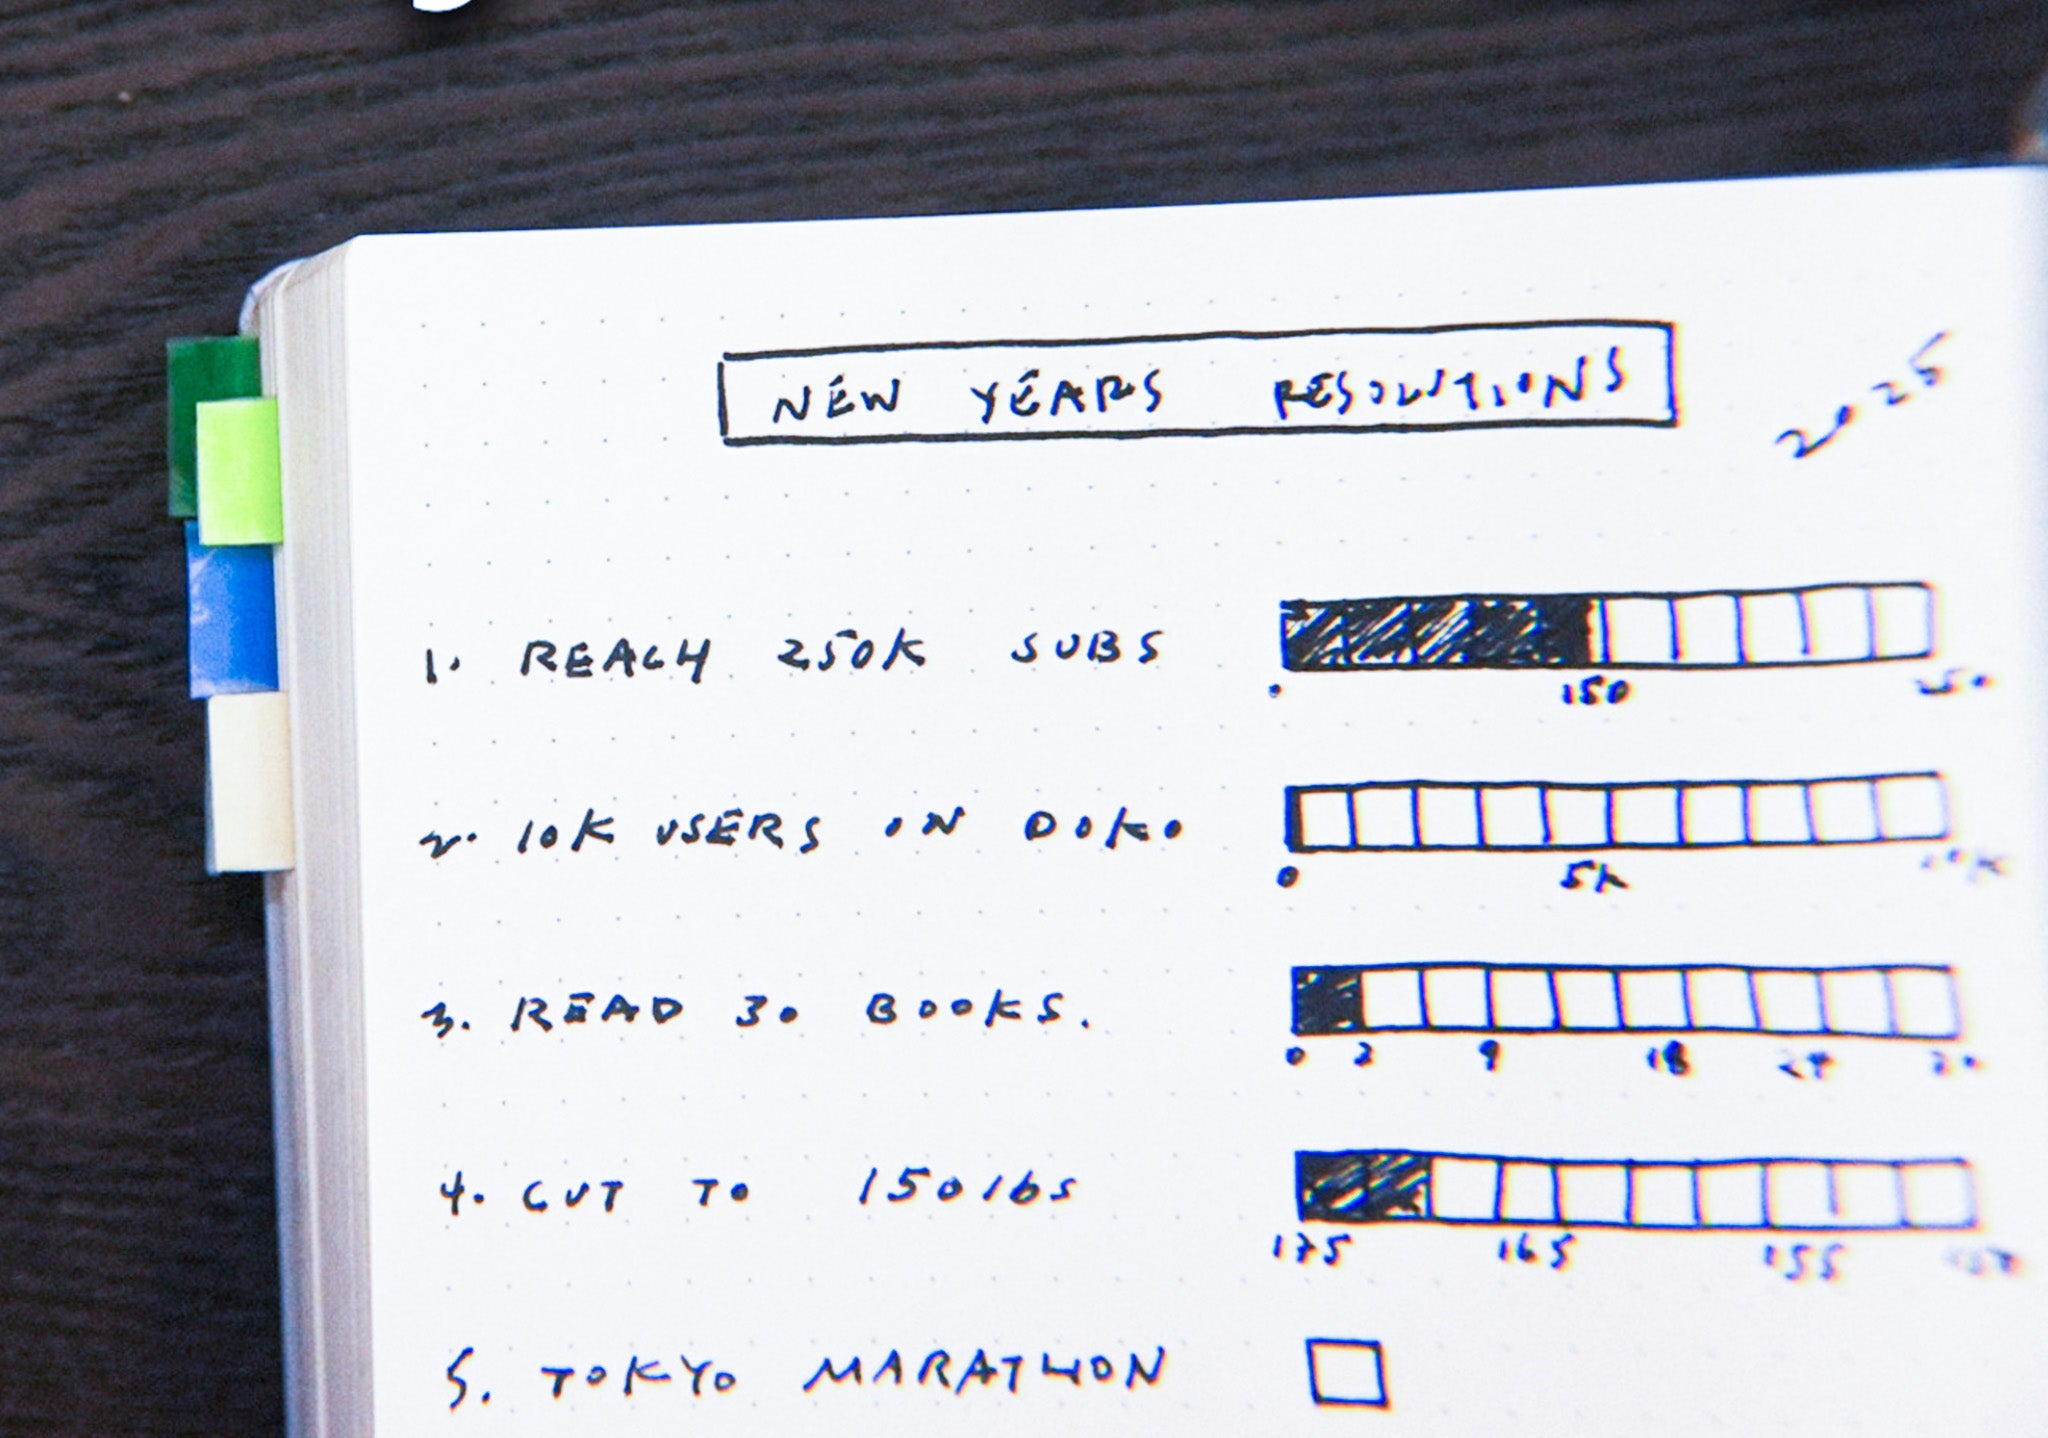 NEW YEARS RESOLUTIONS
2025
1. REACH 250K SUBS
0 150 250
2. 10K USERS ON DOKO
0 5K 10K
3. READ 30 BOOKS.
0 3 9 18 24 30
4. CUT TO 150lbs
175 165 155 150
5. TOKYO MARATHON